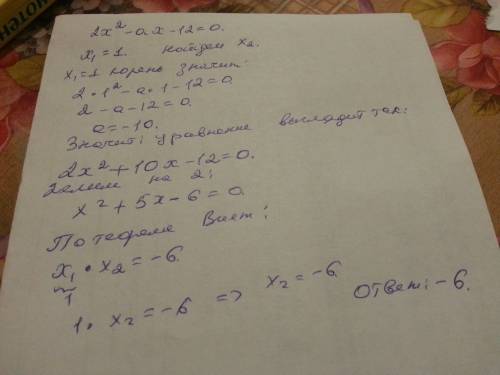 2x² - ax - 12 = 0.
x₁ = 1. Найдем x₂.
x₁ = 1 корень значит:
2 · 1² - a · 1 - 12 = 0
2 - a - 12 = 0.
a = -10.
Значит: уравнение выглядит так:
2x² + 10x - 12 = 0.
Делим на 2:
x² + 5x - 6 = 0
По теореме Виет:
x₁ · x₂ = -6.
1
1 · x₂ = -6 => x₂ = -6. Ответ: -6.